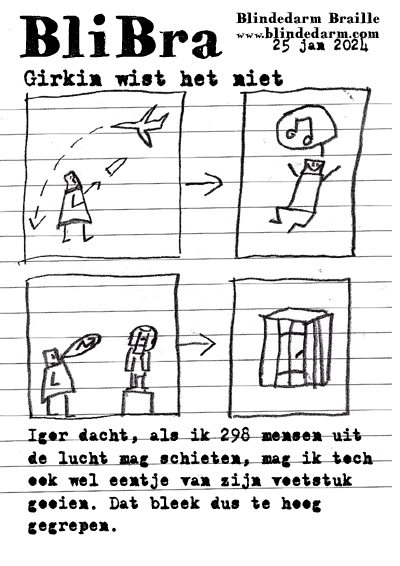 BliBra
Blindedarm Braille
www.blindedarm.com
25 jan 2024
Girkin wist het niet
Igor dacht, als ik 298 mensen uit
de lucht mag schieten, mag ik toch
ook wel eentje van zijn voetstuk
gooien. Dat bleek dus te hoog
gegrepen.